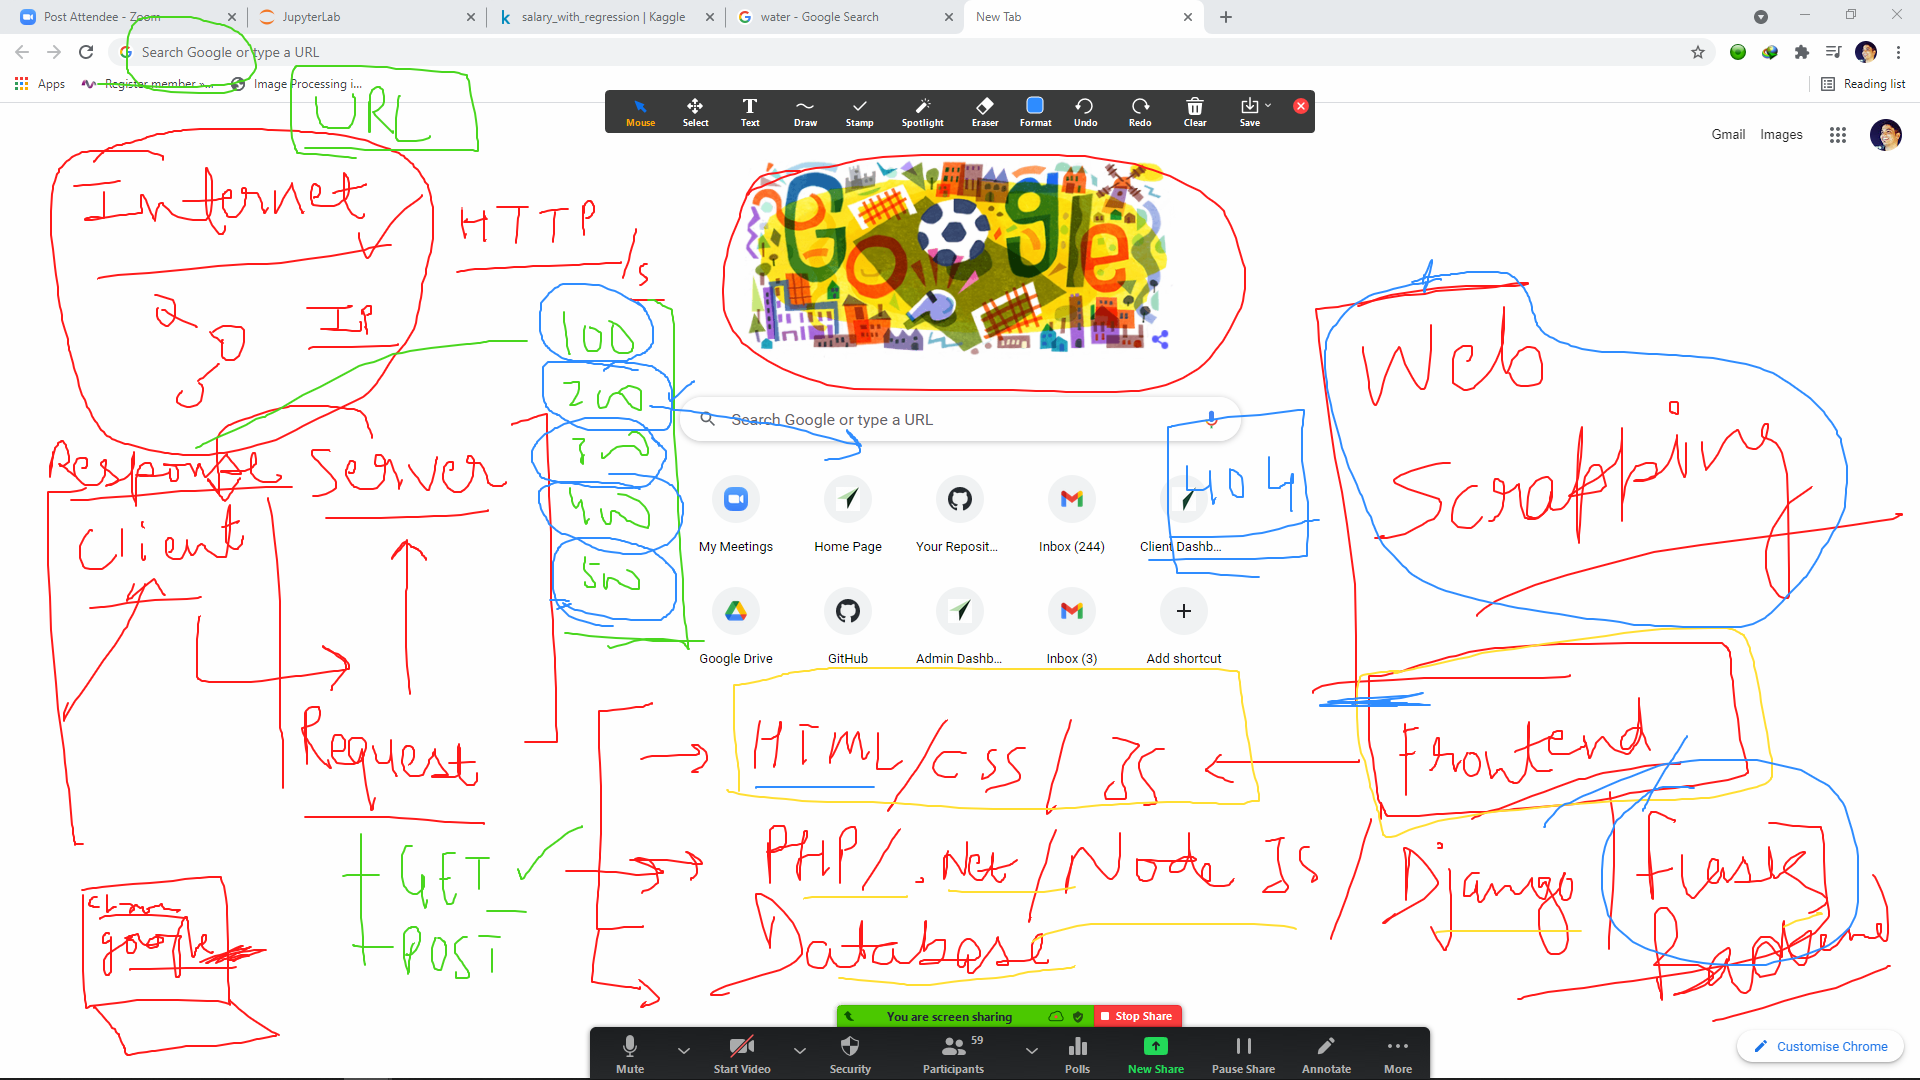 Post Attendee - Zoom
JupyterLab
salary_with_regression | Kaggle
water - Google Search
New Tab
Search Google or type a URL
Apps
Register member »...
Image Processing i...
Reading list
URL
Mouse
Select
Text
Draw
Stamp
Spotlight
Eraser
Format
Undo
Redo
Clear
Save
Gmail
Images
Internet
HTTP/s
IP
Google
Web
Scrapping
100
200
300
400
500
Search Google or type a URL
404
Response
Server
Client
My Meetings
Home Page
Your Reposit...
Inbox (244)
Client Dashb...
Google Drive
GitHub
Admin Dashb...
Inbox (3)
Add shortcut
Request
HTML/CSS/JS
Frontend
GET
POST
PHP/.Net/Node JS/Django
Flask
Database
google
You are screen sharing
Stop Share
Mute
Start Video
Security
59
Participants
Polls
New Share
Pause Share
Annotate
More
Customise Chrome